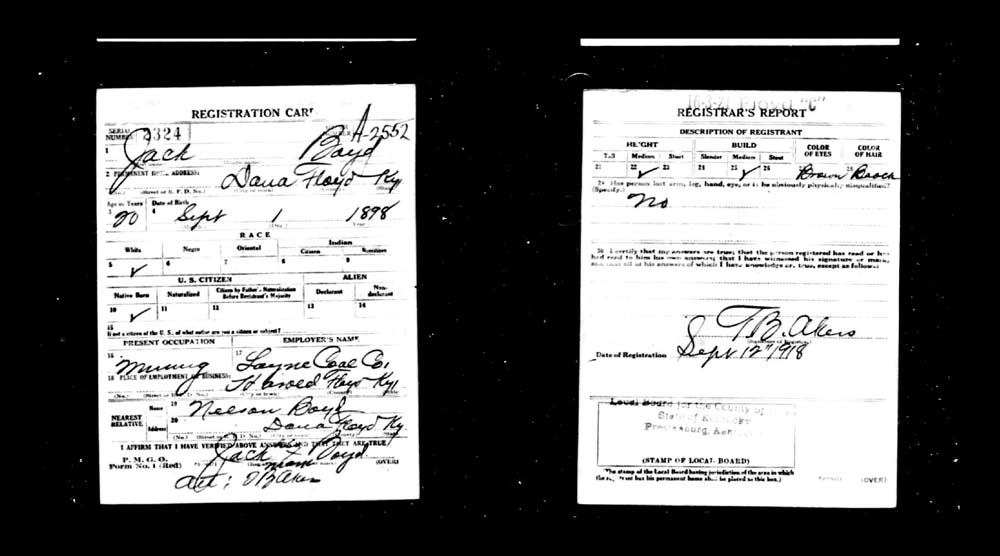 REGISTRATION CARD
SERIAL NUMBER 2324 A-2552
1 Jack Boyd
2 PERMANENT HOME ADDRESS:
Dana Floyd Ky
(Street or R. F. D. No.)
Age in Years Date of Birth
3 20 4 Sept 1 1898
RACE
White Negro Oriental Indian
Citizen Noncitizen
5 ✓ 6 7 8 9
U. S. CITIZEN ALIEN
Native Born Naturalized Citizen by Father's Naturalization Before Registrant's Majority Declarant Non-declarant
10 ✓ 11 12 13 14
15
If not a citizen of the U. S., of what nation are you a citizen or subject?
PRESENT OCCUPATION EMPLOYER'S NAME
16 Mining 17 Layne Coal Co.
18 PLACE OF EMPLOYMENT OR BUSINESS:
Floyd Ky
NEAREST RELATIVE
Name 19 Nelson Boyd
Address 20 Dana Floyd Ky.
I AFFIRM THAT I HAVE VERIFIED ABOVE ANSWERS AND THAT THEY ARE TRUE
P. M. G. O.
Form No. 1 (Red)
Jack Boyd
mark
(OVER)
B Akers
16-3-21 Floyd "C"
REGISTRAR'S REPORT
DESCRIPTION OF REGISTRANT
HEIGHT BUILD COLOR OF EYES COLOR OF HAIR
Tall Medium Short Slender Medium Stout
21 22 ✓ 23 24 25 ✓ 26 27 Brown 28
29 Has person lost arm, leg, hand, eye, or is he obviously physically disqualified?
(Specify.)
No
30 I certify that my answers are true; that the person registered has read or has
had read to him his own answers; that I have witnessed his signature or mark,
and that all of his answers of which I have knowledge are true, except as follows:
T B. Akers
(Signature of Registrar)
Date of Registration Sept 12" 1918
Local Board for the County of
State of Kentucky
Prestonsburg, Kentucky
(STAMP OF LOCAL BOARD)
(The stamp of the Local Board having jurisdiction of the area in which
the registrant has his permanent home shall be placed in this box.)
(OVER)